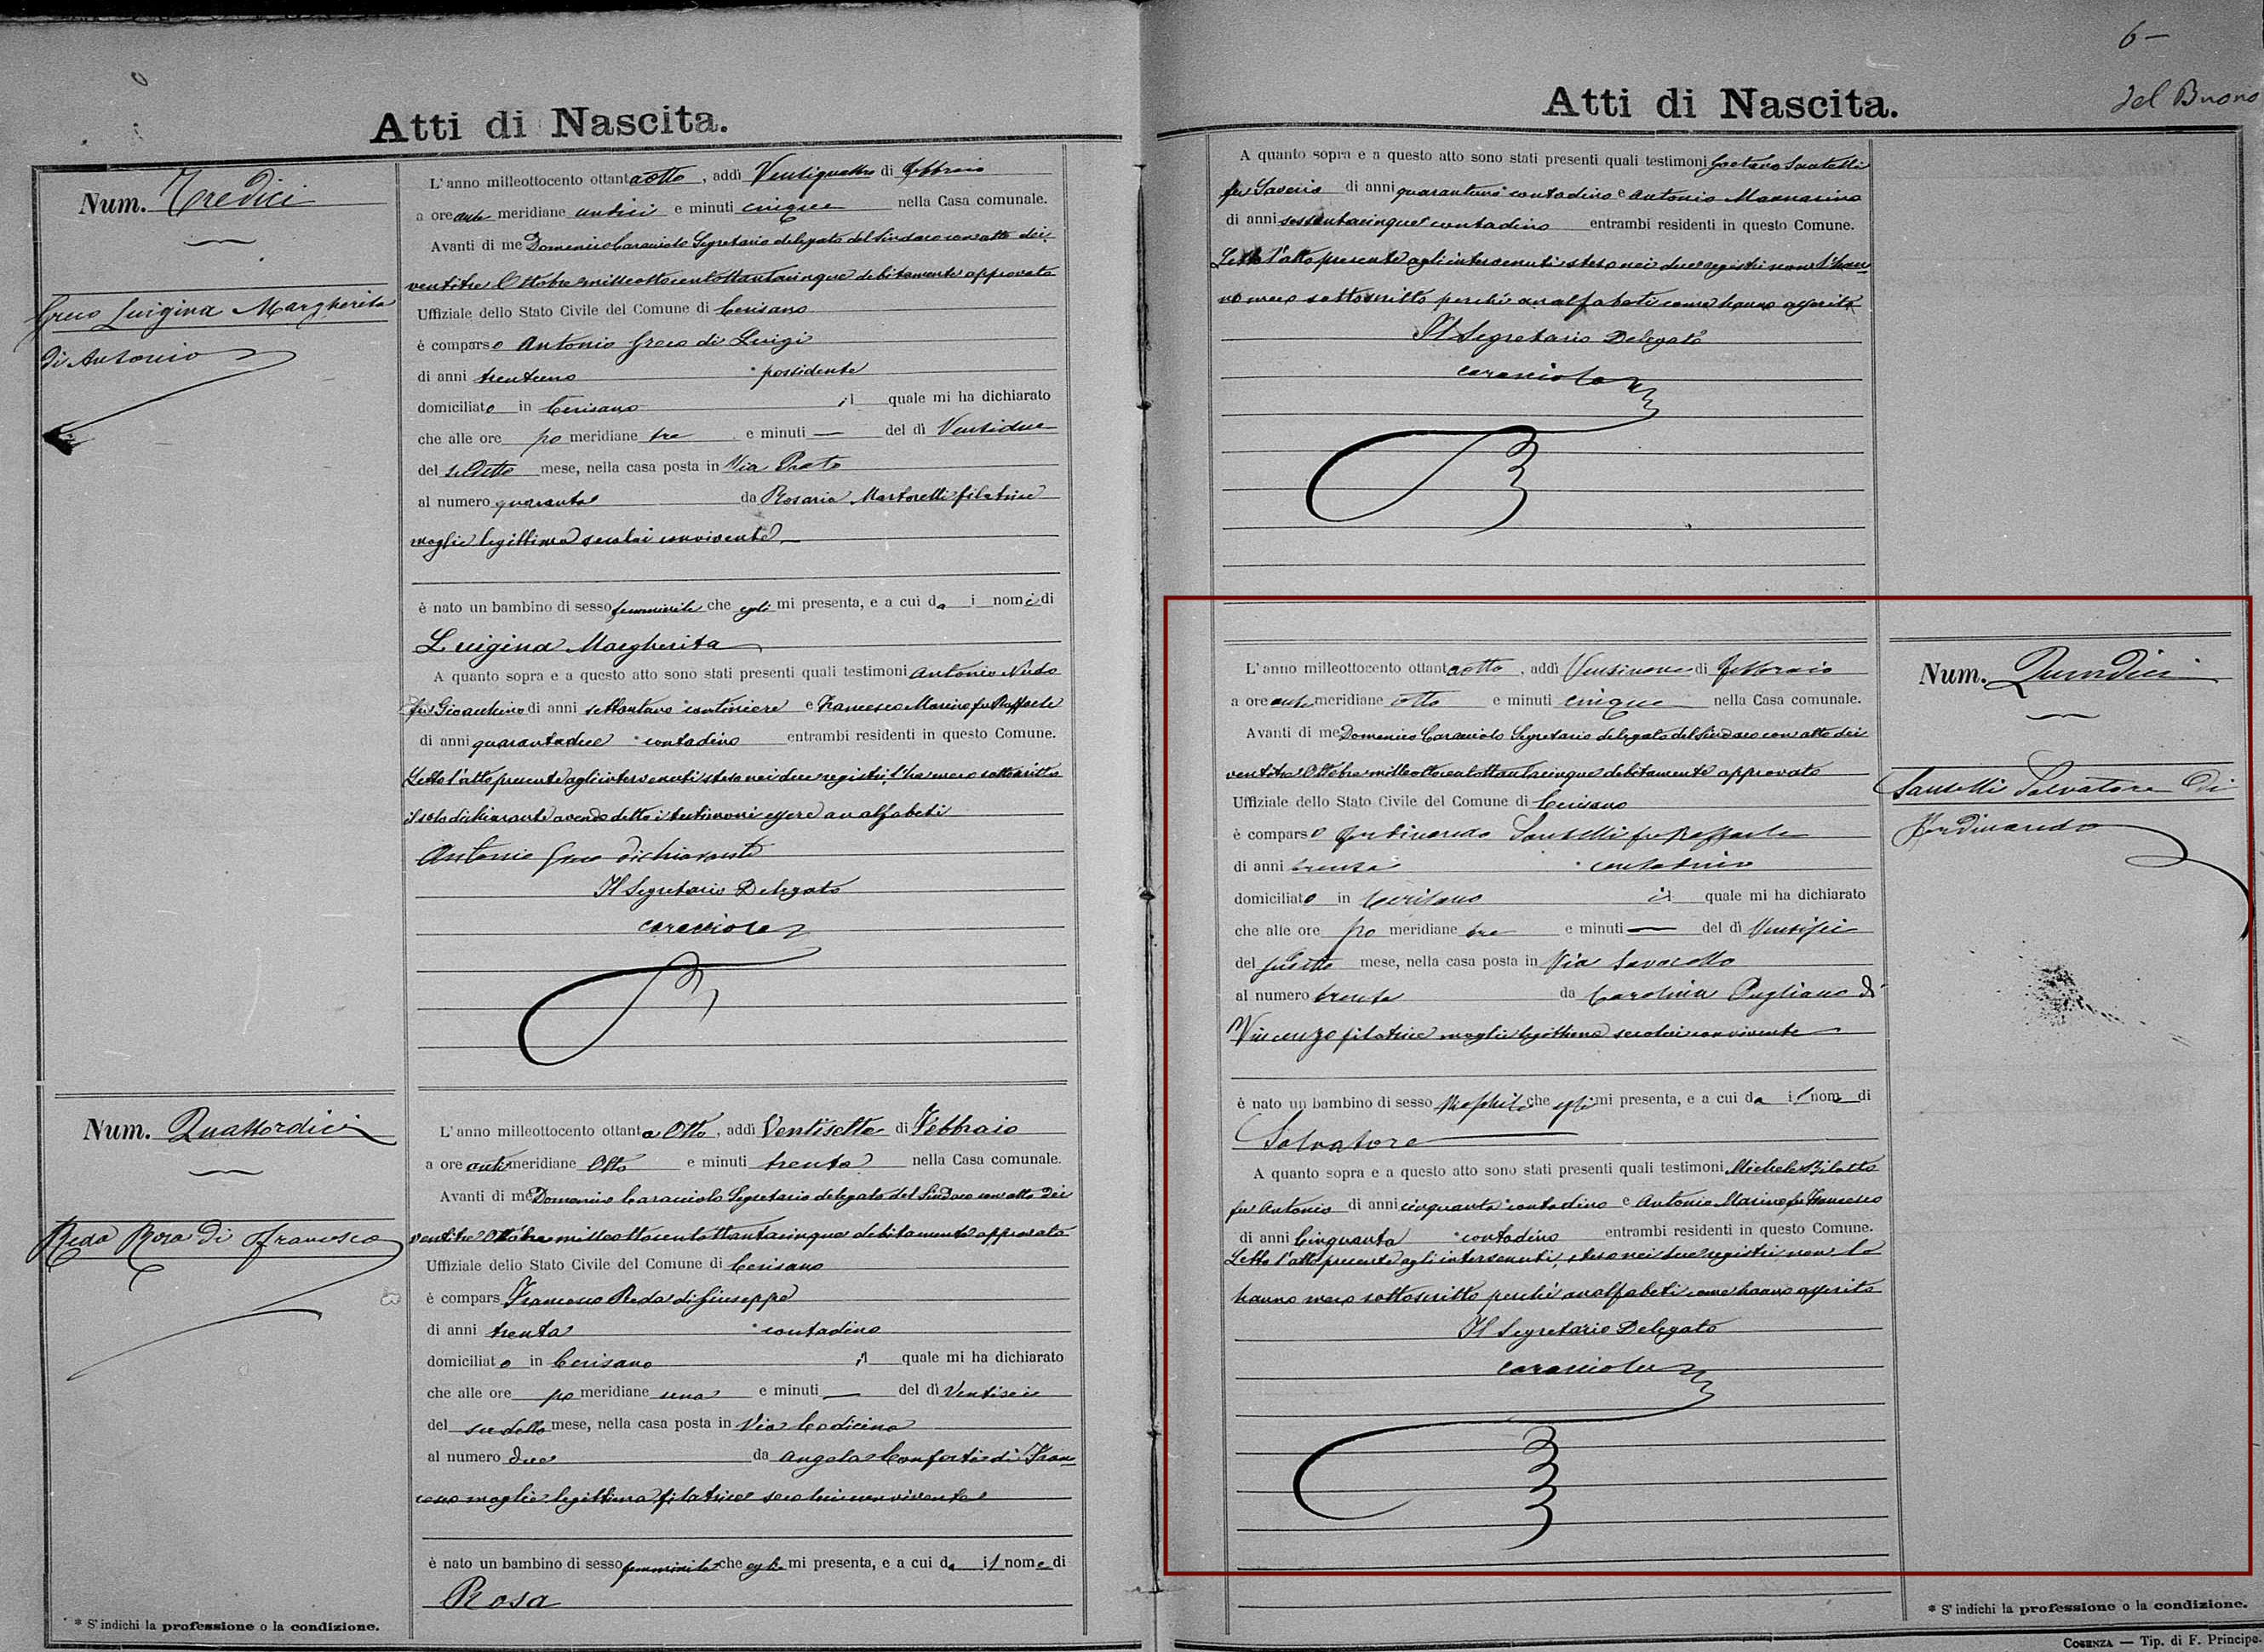 Atti di Nascita.
Num. Tredici
Greco Luigina Margherita
di Antonio
L'anno milleottocento ottantaotto, addì Ventiquattro di Febbraio
a ore ante meridiane undici e minuti cinque nella Casa comunale.
Avanti di me Domenico Caracciolo Segretario delegato del Sindaco con atto dei
ventitre Ottobre milleottocentottantacinque debitamente approvato
Uffiziale dello Stato Civile del Comune di Cerisano
è comparso Antonio Greco di Luigi
di anni trentuno * possidente
domiciliato in Cerisano il quale mi ha dichiarato
che alle ore po meridiane tre e minuti — del dì Ventidue
del sudetto mese, nella casa posta in Via Prato
al numero quaranta da Rosaria Martorelli filatrice
moglie legittima seco lui convivente
è nato un bambino di sesso femminile che egli mi presenta, e a cui da i nomi di
Luigina Margherita
A quanto sopra e a questo atto sono stati presenti quali testimoni Antonio Nudo
fu Gioacchino di anni * cantiniere e Francesco Marino fu Raffaele
di anni quarantadue * contadino entrambi residenti in questo Comune.
Letto l'atto presente agli intervenuti steso nei due registri, l'ha meco sottoscritto
il solo dichiarante avendo detto i testimoni essere analfabeti
Antonio Greco dichiarante
Il Segretario Delegato
Caracciolo
Num. Quattordici
Reda Rosa di Francesco
L'anno milleottocento ottanta Otto, addì Ventisette di Febbraio
a ore anti meridiane Otto e minuti trenta nella Casa comunale.
Avanti di me Domenico Caracciolo Segretario delegato del Sindaco con atto dei
ventitre Ottobre milleottocentottantacinque debitamente approvato
Uffiziale dello Stato Civile del Comune di Cerisano
è compars Francesco Reda di Giuseppe
di anni trenta * contadino
domiciliato in Cerisano il quale mi ha dichiarato
che alle ore po meridiane una e minuti — del dì Ventisei
del sudetto mese, nella casa posta in Via Codicina
al numero due da Angela Conforti di Fran
cesco moglie legittima filatrice seco lui convivente
è nato un bambino di sesso femminile che egli mi presenta, e a cui da il nome di
Rosa
* S'indichi la professione o la condizione.
6 —
del Buono
Atti di Nascita.
A quanto sopra e a questo atto sono stati presenti quali testimoni Gaetano Santelli
fu Saverio di anni quarantuno * contadino e Antonio Mannarino
di anni sessantacinque contadino entrambi residenti in questo Comune.
Letto l'atto presente agli intervenuti steso nei due registri non l'han
no meco sottoscritto perchè analfabeti come hanno asserito
Il Segretario Delegato
Caracciolo
Num. Quindici
Santelli Salvatore di
Ferdinando
L'anno milleottocento ottantaotto, addì Ventinove di Febbraio
a ore ante meridiane otto e minuti cinque nella Casa comunale.
Avanti di me Domenico Caracciolo Segretario delegato del Sindaco con atto dei
ventitre Ottobre milleottocentottantacinque debitamente approvato
Uffiziale dello Stato Civile del Comune di Cerisano
è comparso Ferdinando Santelli fu Raffaele
di anni trenta * contadino
domiciliato in Cerisano il quale mi ha dichiarato
che alle ore po meridiane tre e minuti — del dì Ventisei
del sudetto mese, nella casa posta in Via Savacello
al numero trenta da Carolina Pugliano di
Vincenzo filatrice moglie legittima seco lui convivente
è nato un bambino di sesso maschile che egli mi presenta, e a cui da il nome di
Salvatore
A quanto sopra e a questo atto sono stati presenti quali testimoni Michele Bilotto
fu Antonio di anni cinquanta * contadino e Antonio Marino fu Francesco
di anni Cinquanta * contadino entrambi residenti in questo Comune.
Letto l'atto presente agli intervenuti, steso nei due registri non lo
hanno meco sottoscritto perchè analfabeti come hanno asserito
Il Segretario Delegato
Caracciolo
* S'indichi la professione o la condizione.
Cosenza — Tip. di F. Principe